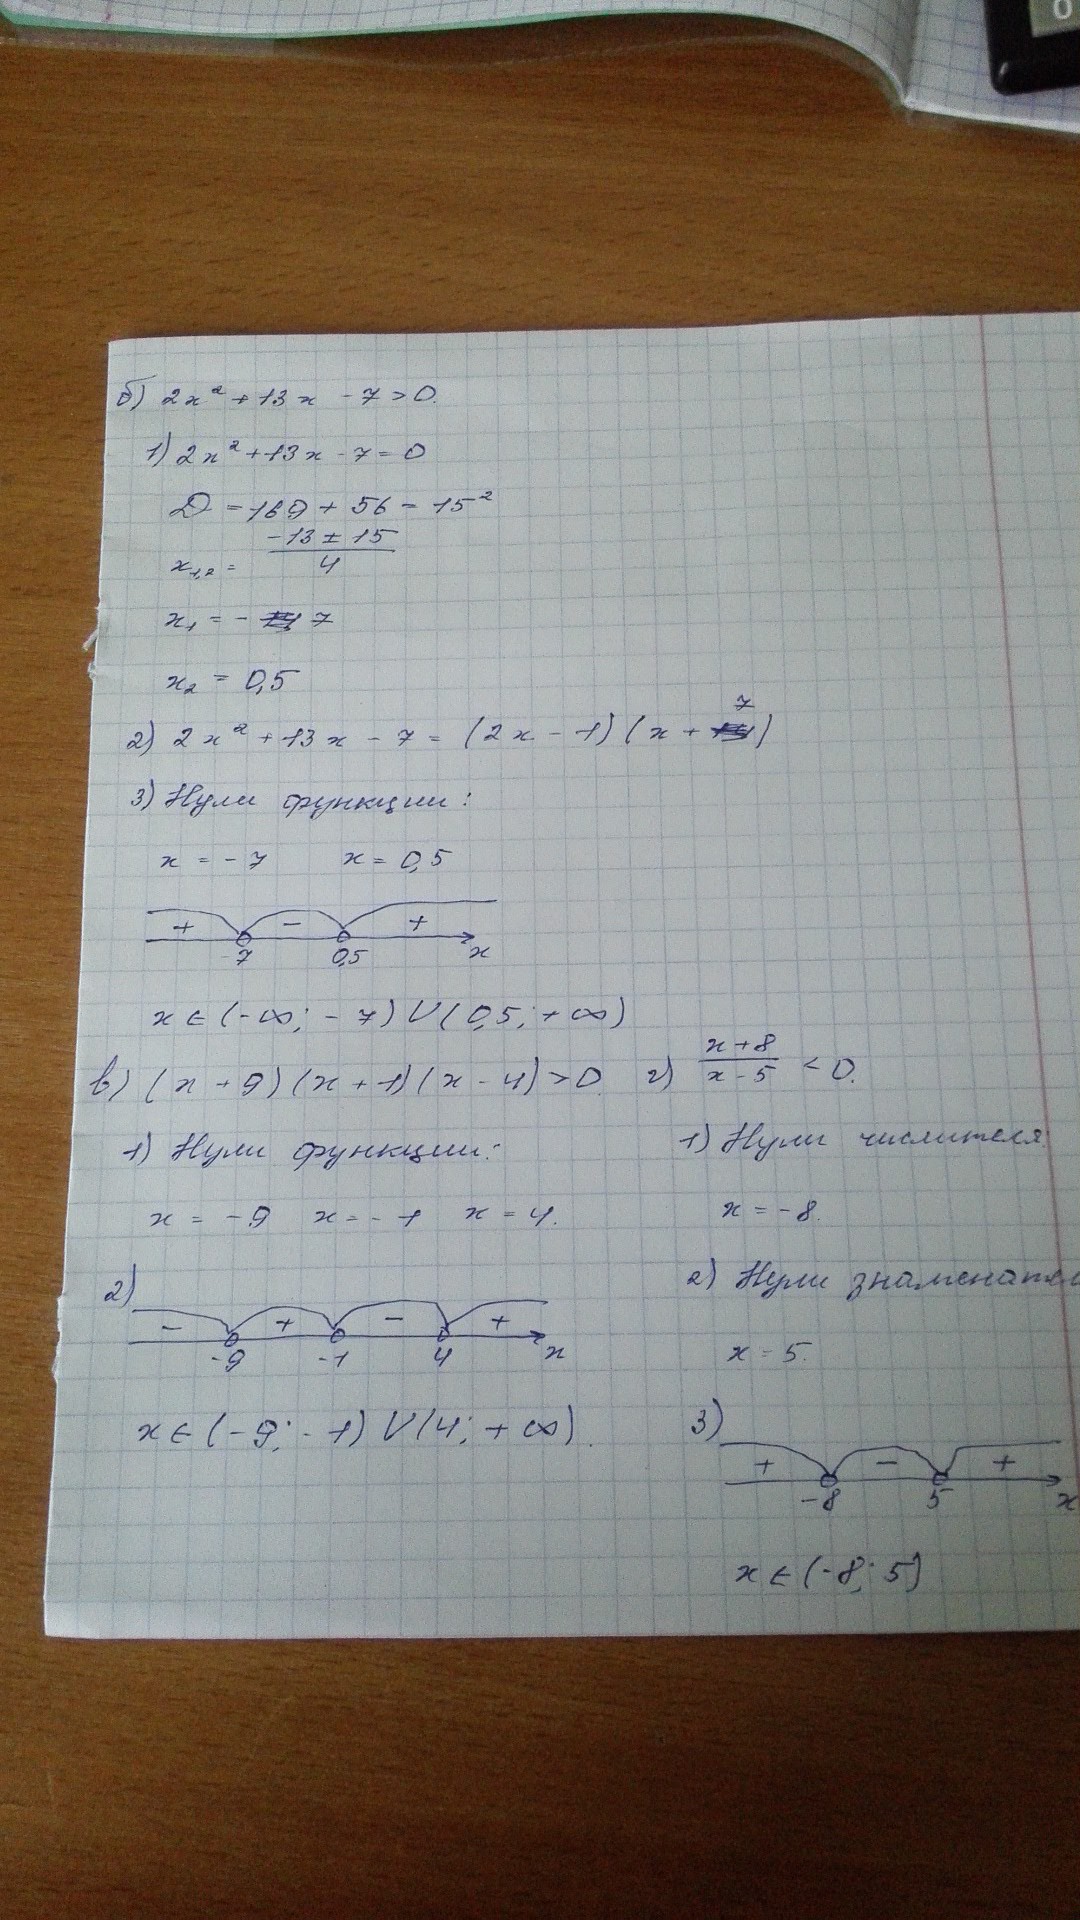 б) 2x² + 13x - 7 > 0.
1) 2x² + 13x - 7 = 0
D = 169 + 56 = 15²
x₁,₂ = (-13 ± 15)/4
x₁ = - 7
x₂ = 0,5
2) 2x² + 13x - 7 = (2x - 1)(x + 7)
3) Нули функции:
x = -7 x = 0,5
+ - +
-7 0,5 x
x ∈ (-∞; -7) ∪ (0,5; +∞)
в) (x + 9)(x + 1)(x - 4) > 0
1) Нули функции:
x = -9 x = -1 x = 4.
2)
- + - +
-9 -1 4 x
x ∈ (-9; -1) ∪ (4; +∞).
г) (x+8)/(x-5) < 0.
1) Нули числителя
x = -8.
2) Нули знаменател
x = 5.
3)
+ - +
-8 5 x
x ∈ (-8; 5)
0